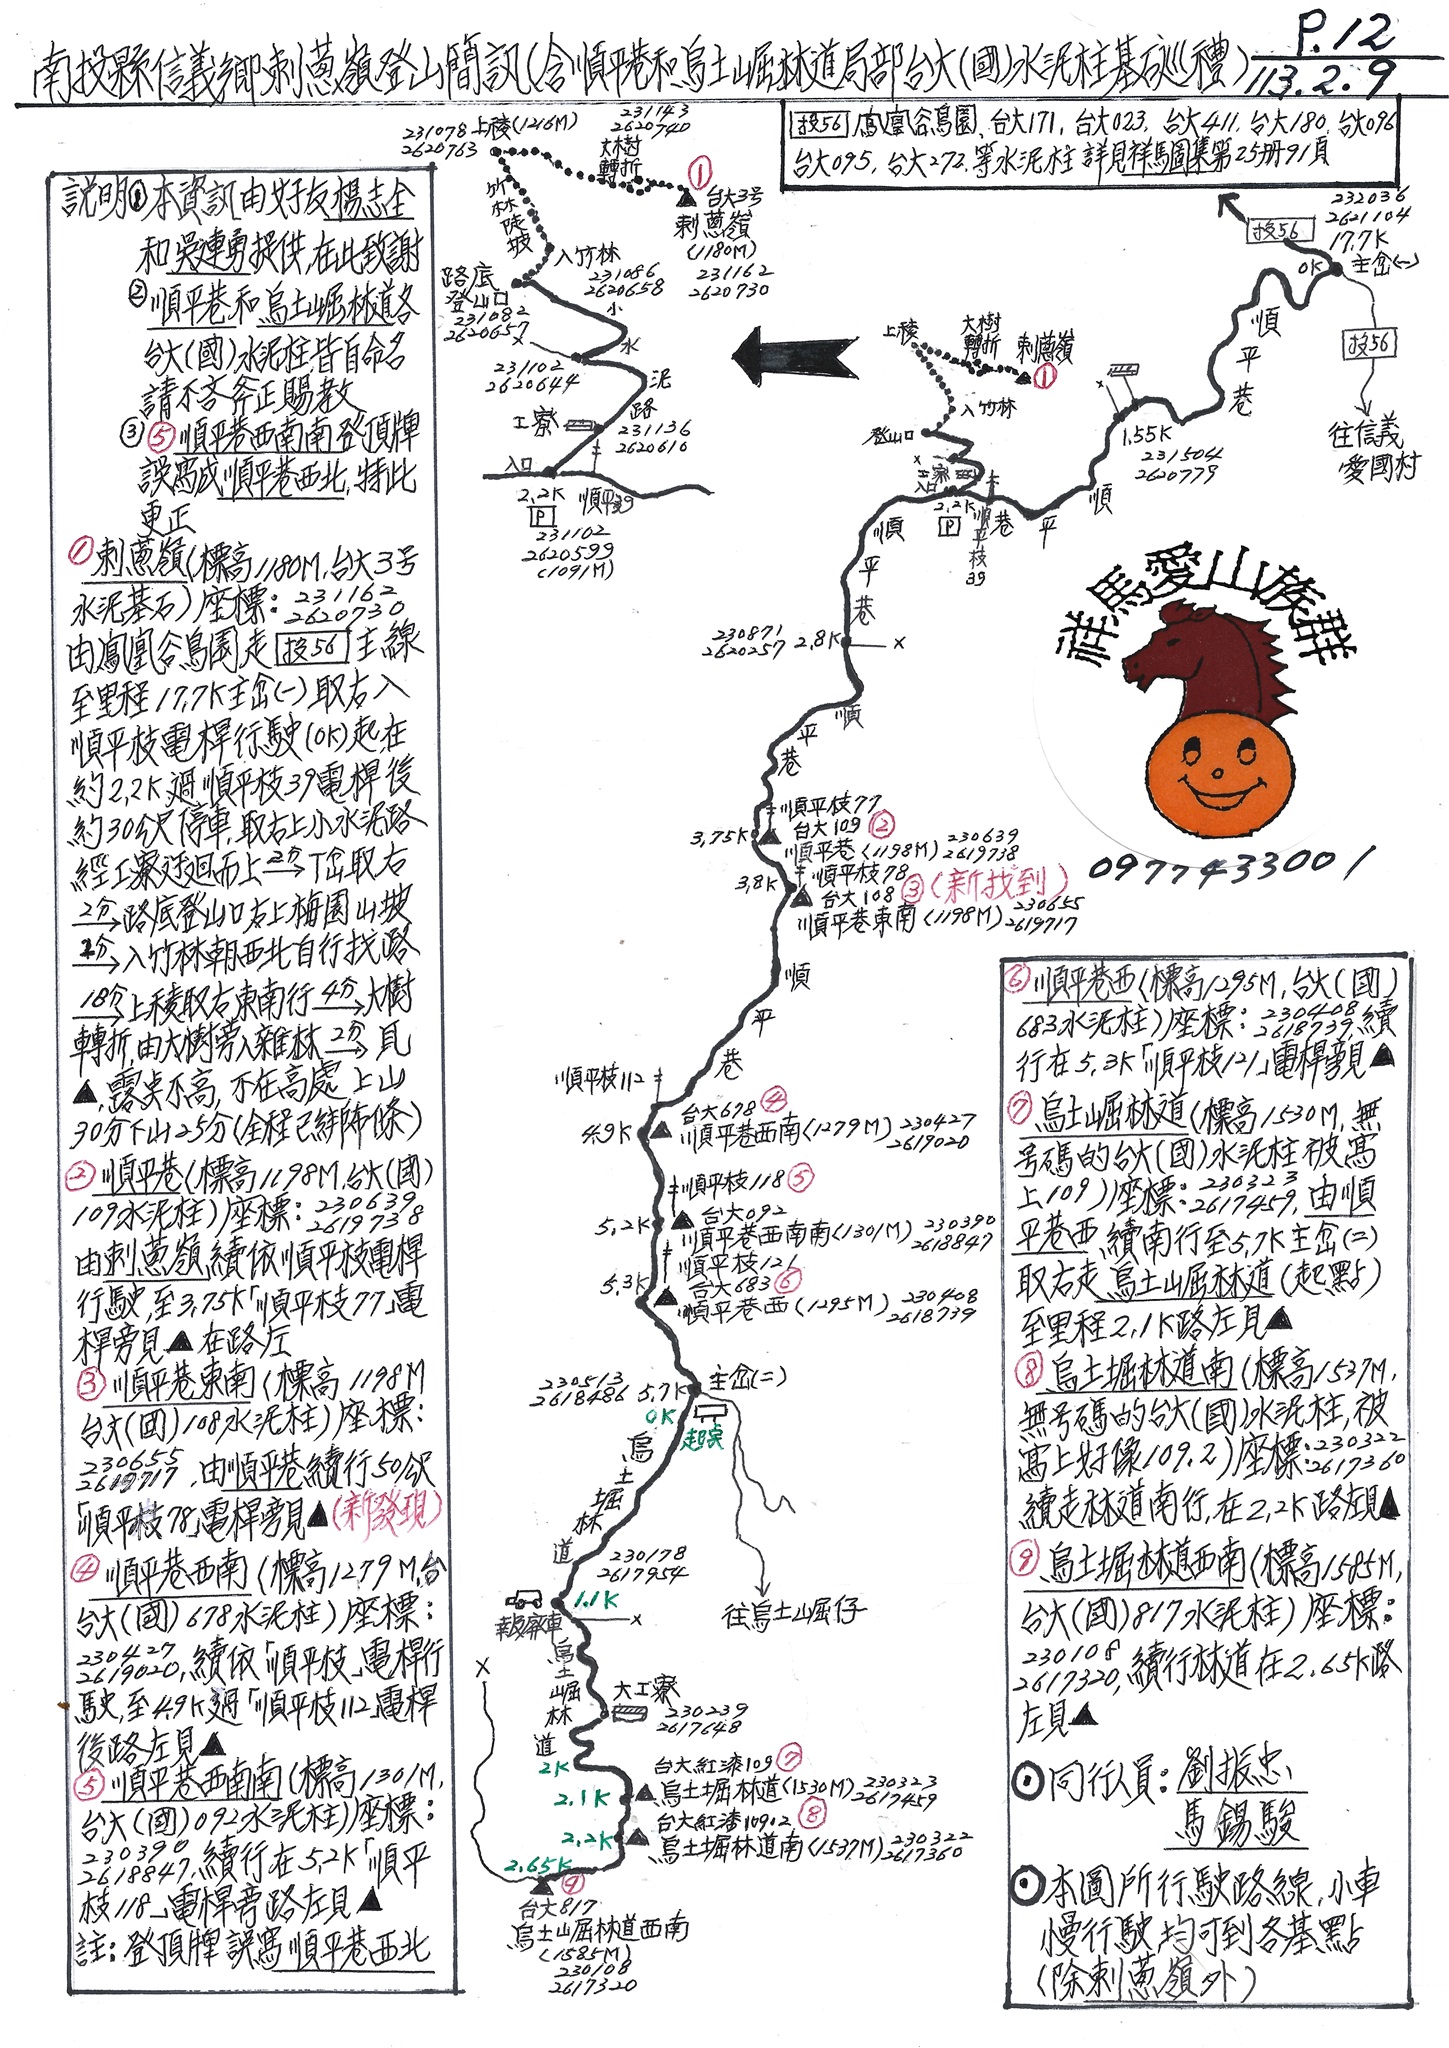 P.12
南投縣信義鄉刺蔥嶺登山簡訊(含順平巷和烏土堀林道局部台大(國)水泥柱基石巡禮)
113.2.9
投56 鳳凰谷鳥園、台大171, 台大023, 台大411, 台大180, 台大096
台大095, 台大272, 等水泥柱 詳見祥馬圖集第25册91頁
說明①本資訊由好友楊志全
和吳連勇提供,在此致謝
②順平巷和烏土堀林道各
台大(國)水泥柱皆自命名
請不吝斧正賜教
③⑤順平巷西南南登頂牌
誤寫成順平巷西北,特此
更正
①刺蔥嶺(標高1180M,台大3号
水泥基石)座標:231162
2620730
由鳳凰谷鳥園走投56主線
至里程17.7K主岔(一)取右入
順平枝電桿行駛(0K)起,在
約2.2K過順平枝39電桿後
約30公尺停車,取右上小水泥路
經工寮迂迴而上2分→丁岔取右
2分→路底登山口右上梅園山坡
1分→入竹林朝西北自行找路
18分→上稜取右東南行4分→大樹
轉折,由大樹旁入雜林2分→見
▲,露尖不高,不在高處 上山
30分下山25分(全程已綁布條)
②順平巷(標高1198M,台大(國)
109水泥柱)座標:230639
2619738
由刺蔥嶺續依順平枝電桿
行駛,至3.75K「順平枝77」電
桿旁見▲在路左
③順平巷東南(標高1198M
台大(國)108水泥柱)座標:
230655
2619717,由順平巷續行50公尺
「順平枝78」電桿旁見▲(新發現)
④順平巷西南(標高1279M,台
台大(國)678水泥柱)座標:
230427
2619020,續依「順平枝」電桿行
駛,至4.9K過「順平枝112」電桿
後路左見▲
⑤順平巷西南南(標高1301M,
台大(國)092水泥柱)座標:
230390
2618847,續行在5.2K「順平
枝118」電桿旁路左見▲
註:登頂牌誤寫順平巷西北
231078
2620763
上稜(1216M)
231143
2620740
大樹
轉折
①
台大3号
刺蔥嶺
(1180M)
231162
2620730
竹林陡坡
入竹林
231086
2620658
路底
登山口
231082
2620657
小水泥路
x
231102
2620644
工寮
231136
2620616
入口
2.2K
順平39
P
231102
2620599
(1091M)
232036
2621104
17.7K
投56
0K
主岔(一)
投56
往信義
愛國村
順平巷
上稜
大樹
轉折
刺蔥嶺
①
入竹林
登山口
x
工寮
入口
2.2K
P
順平枝39
x
1.55K
231504
2620779
順平巷
順平巷
230871
2620257
2.8K
x
順平巷
祥馬愛山族群
0977433001
順平枝77
3.75K
台大109②
順平巷(1198M)230639
2619738
順平枝78
3.8K
台大108③(新找到)
順平巷東南(1198M)230655
2619717
順平巷
順平枝112
台大678④
4.9K
順平巷西南(1279M)230427
2619020
順平枝118⑤
台大092
5.2K
順平巷西南南(1301M)230390
2618847
順平枝121
台大683⑥
5.3K
順平巷西(1295M)230408
2618739
230513
2618486
5.7K
主岔(二)
0K
起点
烏土堀林道
往烏土堀仔
230178
2617954
1.1K
報廢車
x
烏土堀林道
大工寮
230239
2617648
x
2K
台大紅漆109⑦
2.1K
烏土堀林道(1530M)230323
2617459
台大紅漆109.2⑧
2.2K
烏土堀林道南(1537M)230322
2617360
2.65K
⑨
台大817
烏土堀林道西南
(1585M)
230108
2617320
⑥順平巷西(標高1295M,台大(國)
683水泥柱)座標:230408
2618739,續
行在5.3K「順平枝121」電桿旁見▲
⑦烏土堀林道(標高1530M,無
号碼的台大(國)水泥柱被寫
上109)座標:230323
2617459,由順
平巷西續南行至5.7K主岔(二)
取右走烏土堀林道(起點)
至里程2.1K路左見▲
⑧烏土堀林道南(標高1537M,
無号碼的台大(國)水泥柱,被
寫上好像109.2)座標:230322
2617360
續走林道南行,在2.2K路左見▲
⑨烏土堀林道西南(標高1585M,
台大(國)817水泥柱)座標:
230108
2617320,續行林道在2.65K路
左見▲
⊙同行人員:劉振忠、
馬錫駿
⊙本圖所行駛路線,小車
慢行駛均可到各基點
(除刺蔥嶺外)